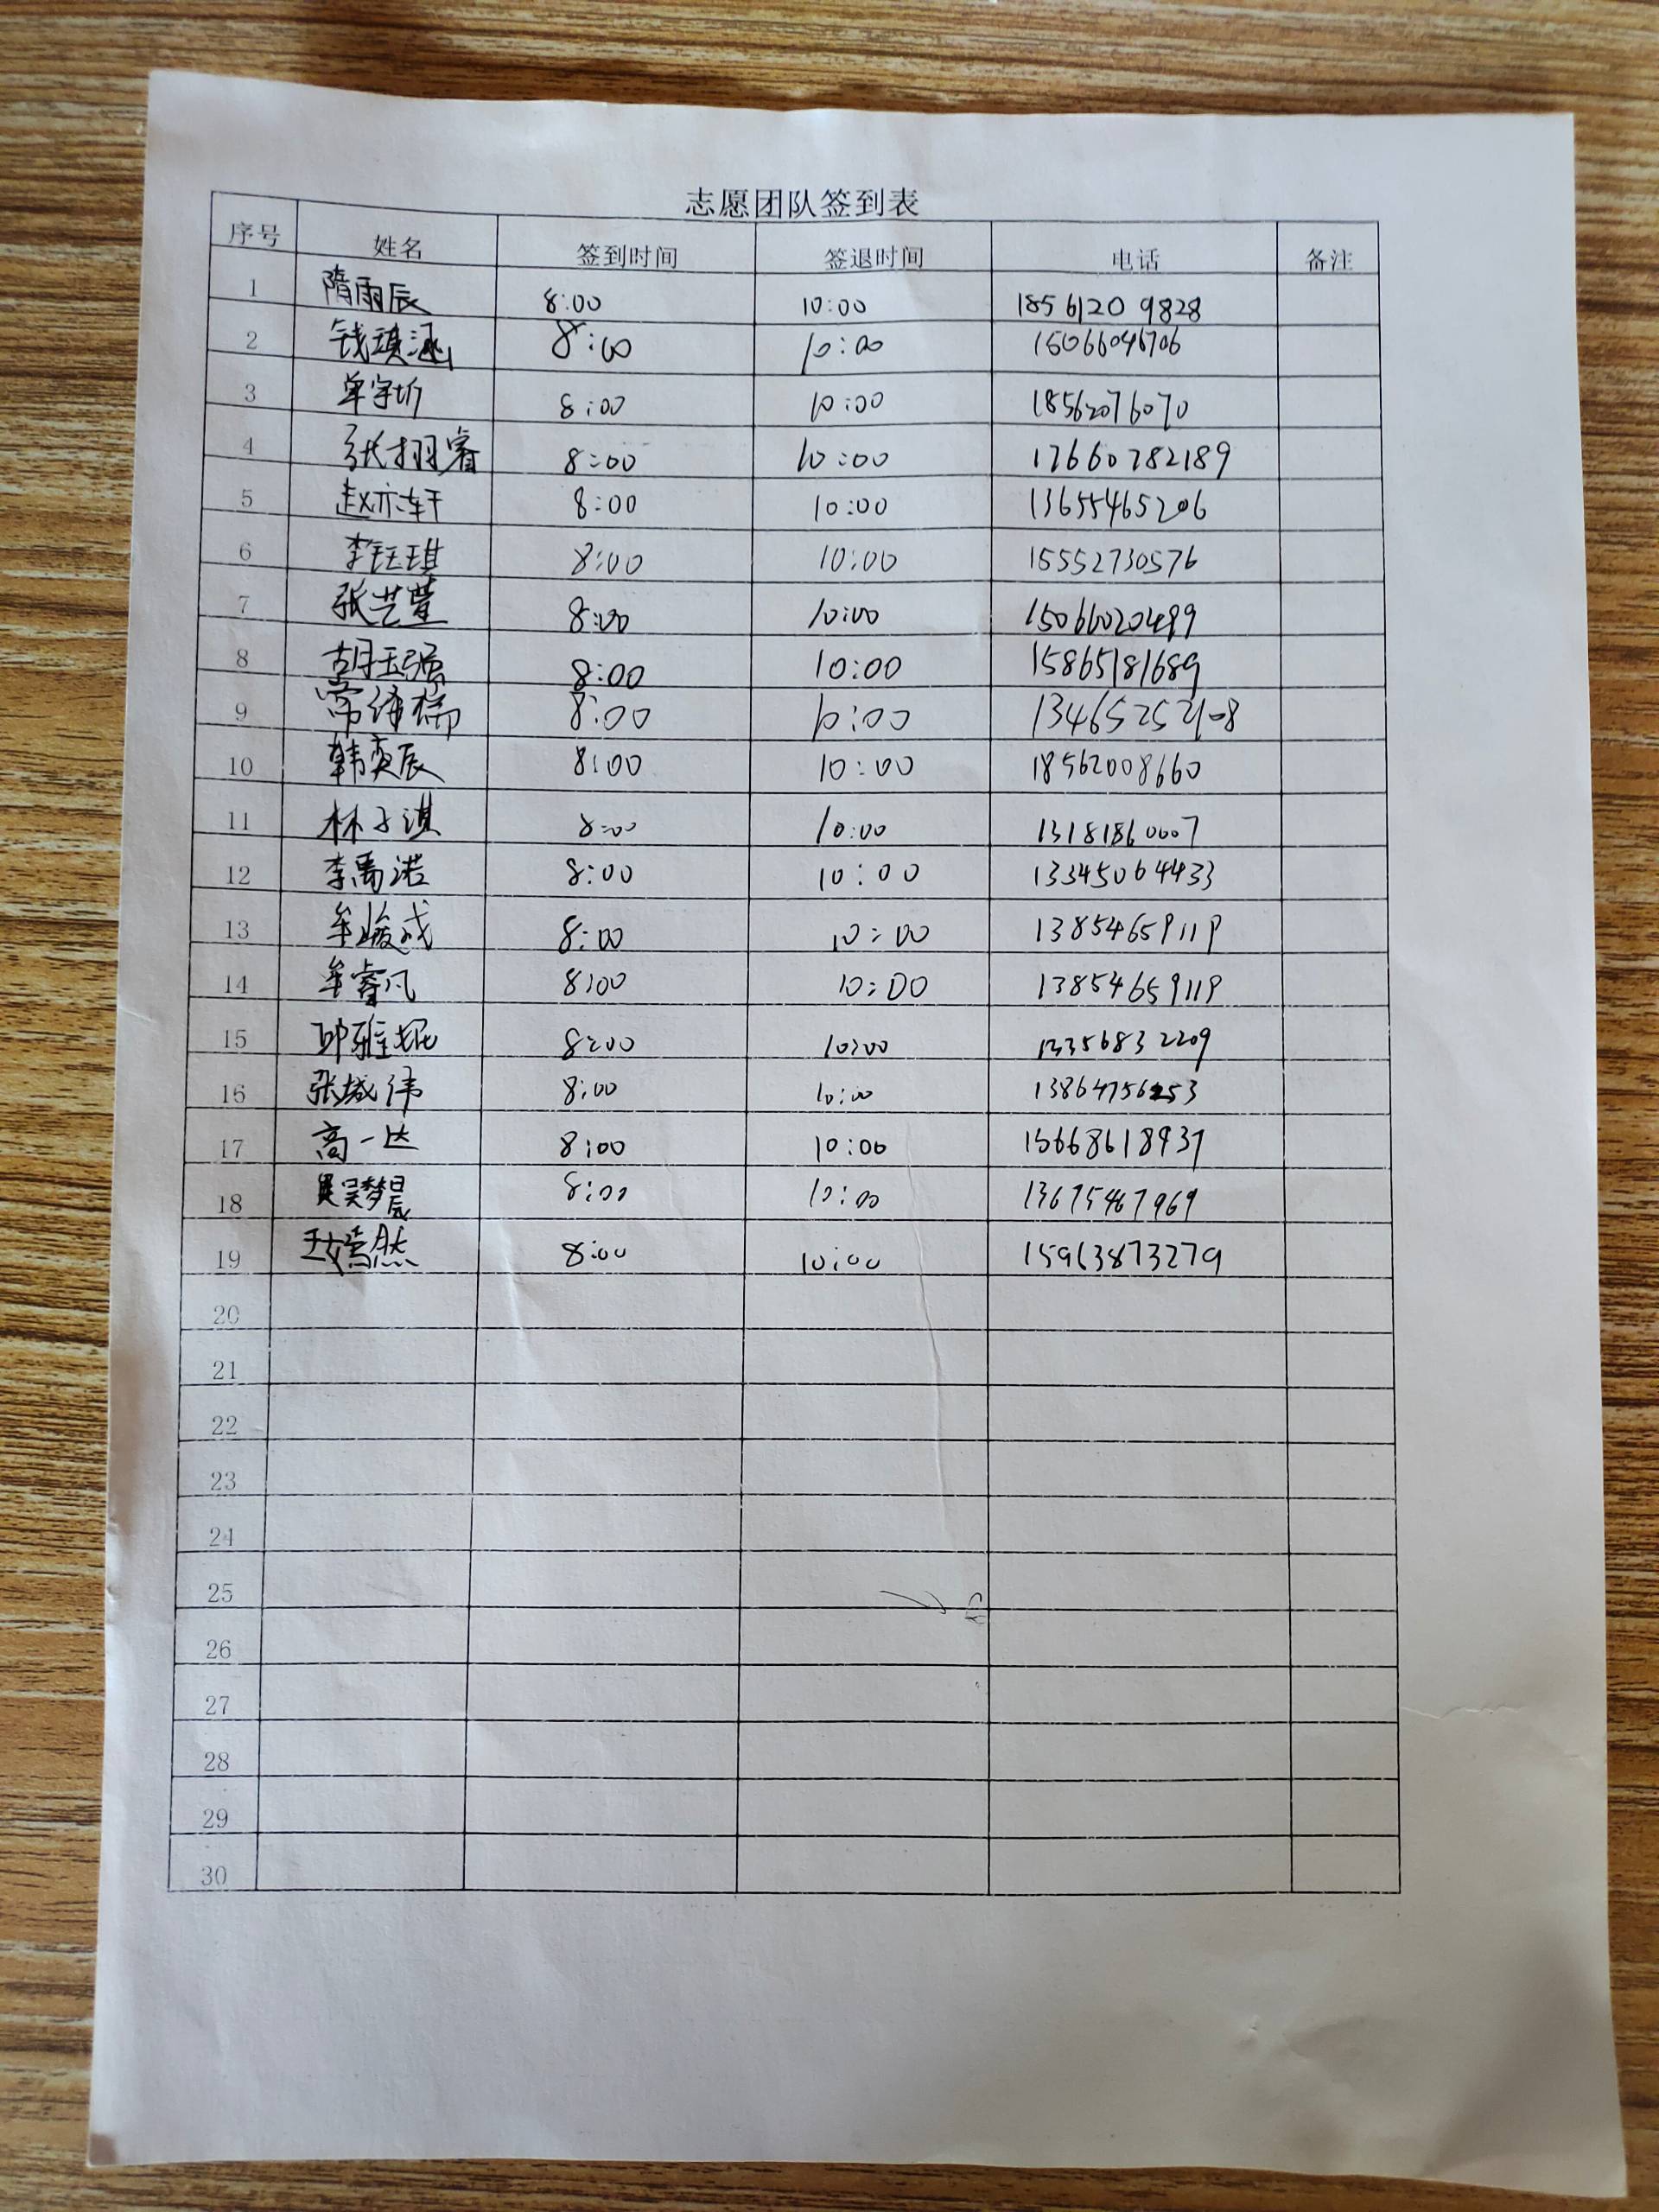 志愿团队签到表
序号 姓名 签到时间 签退时间 电话 备注
1 隋雨辰 8:00 10:00 18561209828
2 钱琪涵 8:00 10:00 15066046706
3 单宇圻 8:00 10:00 18562076070
4 张栩睿 8:00 10:00 17660782189
5 赵亦轩 8:00 10:00 13655465206
6 李钰琪 8:00 10:00 15552730576
7 张艺萱 8:00 10:00 15066020489
8 胡玉强 8:00 10:00 15865181689
9 8:00 10:00
10 韩奕辰 8:00 10:00 18562008660
11 林子淇 8:00 10:00 13181860007
12 李禹诺 8:00 10:00 13345064433
13 牟峻成 8:00 10:00 13854659119
14 牟睿凡 8:00 10:00 13854659119
15 邱雅妮 8:00 10:00 13356832209
16 张城伟 8:00 10:00 13864756253
17 高一达 8:00 10:00 15668618937
18 吴梦晨 8:00 10:00 13675467969
19 8:00 10:00 15963873279
20
21
22
23
24
25
26
27
28
29
30